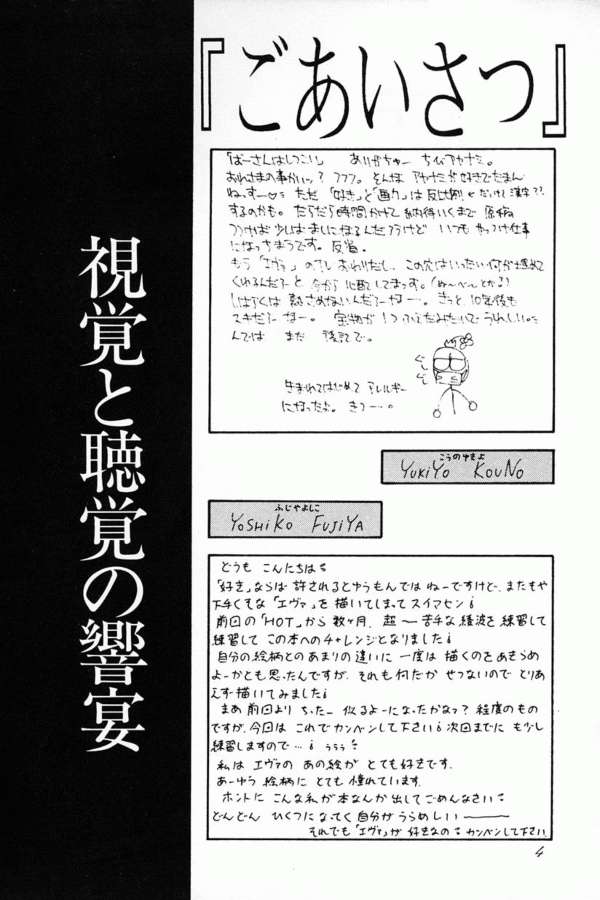 『ごあいさつ』
視覚と聴覚の響宴
「ばーさんはしつこい」 ありがちゅー ちびアヤナミ。
おれさまの事かいッ? フフフ。 そんな アヤナミが好きでたまん
ねっすー ただ 「好き」と「画力」は反比例
するのかも。 だらだら時間かけて 納得いくまで 原稿
少しはましになるんだろうけど いつも やっつけ仕事
になっちまうです。 反省。
もう 「エヴァ」の おわりだし、 この穴はいったい何が埋めて
くれるんだろーと 今から 心配してまっす。
しばらくは 熱さめないんだろーなー…。 きっと 10年後も
スキだろーなー。 宝物が 1つふえたみたいで うれしい。
んでは また 後記で。
生まれてはじめて アレルギー
になったよ。 きつー…。
こうのゆきよ
YUKIYO KOUNO
ふじやよしこ
YOSHIKO FUJIYA
どうも こんにちは
「好き」ならば 許されるとゆうもんでは ねーですけど、またもや
下手くそな 「エヴァ」を 描いてしまって スイマセン!
前回の 「HOT」から 数ヶ月、 超〜 苦手な 綾波を 練習して
練習して この本へのチャレンジとなりました!
自分の絵柄との あまりの違いに 一度は 描くのをあきらめ
よーかとも 思ったんですが、 それも何だか せつないので とりあ
えず 描いてみました!
まぁ 前回より ちったー 似るよーになったかなァ? 程度のもの
ですが、今回は これでカンベンして下さい! 次回までに もう少し
練習しますので…! ううう
私は エヴァの あの絵が とても好きです。
あーゆう 絵柄に とても 憧れています。
ホントに こんな私が 本なんか出して ごめんなさい
どんどん ひくつになってく 自分がうらめしい———
それでも「エヴァ」が 好きなの カンベンして下さい
4